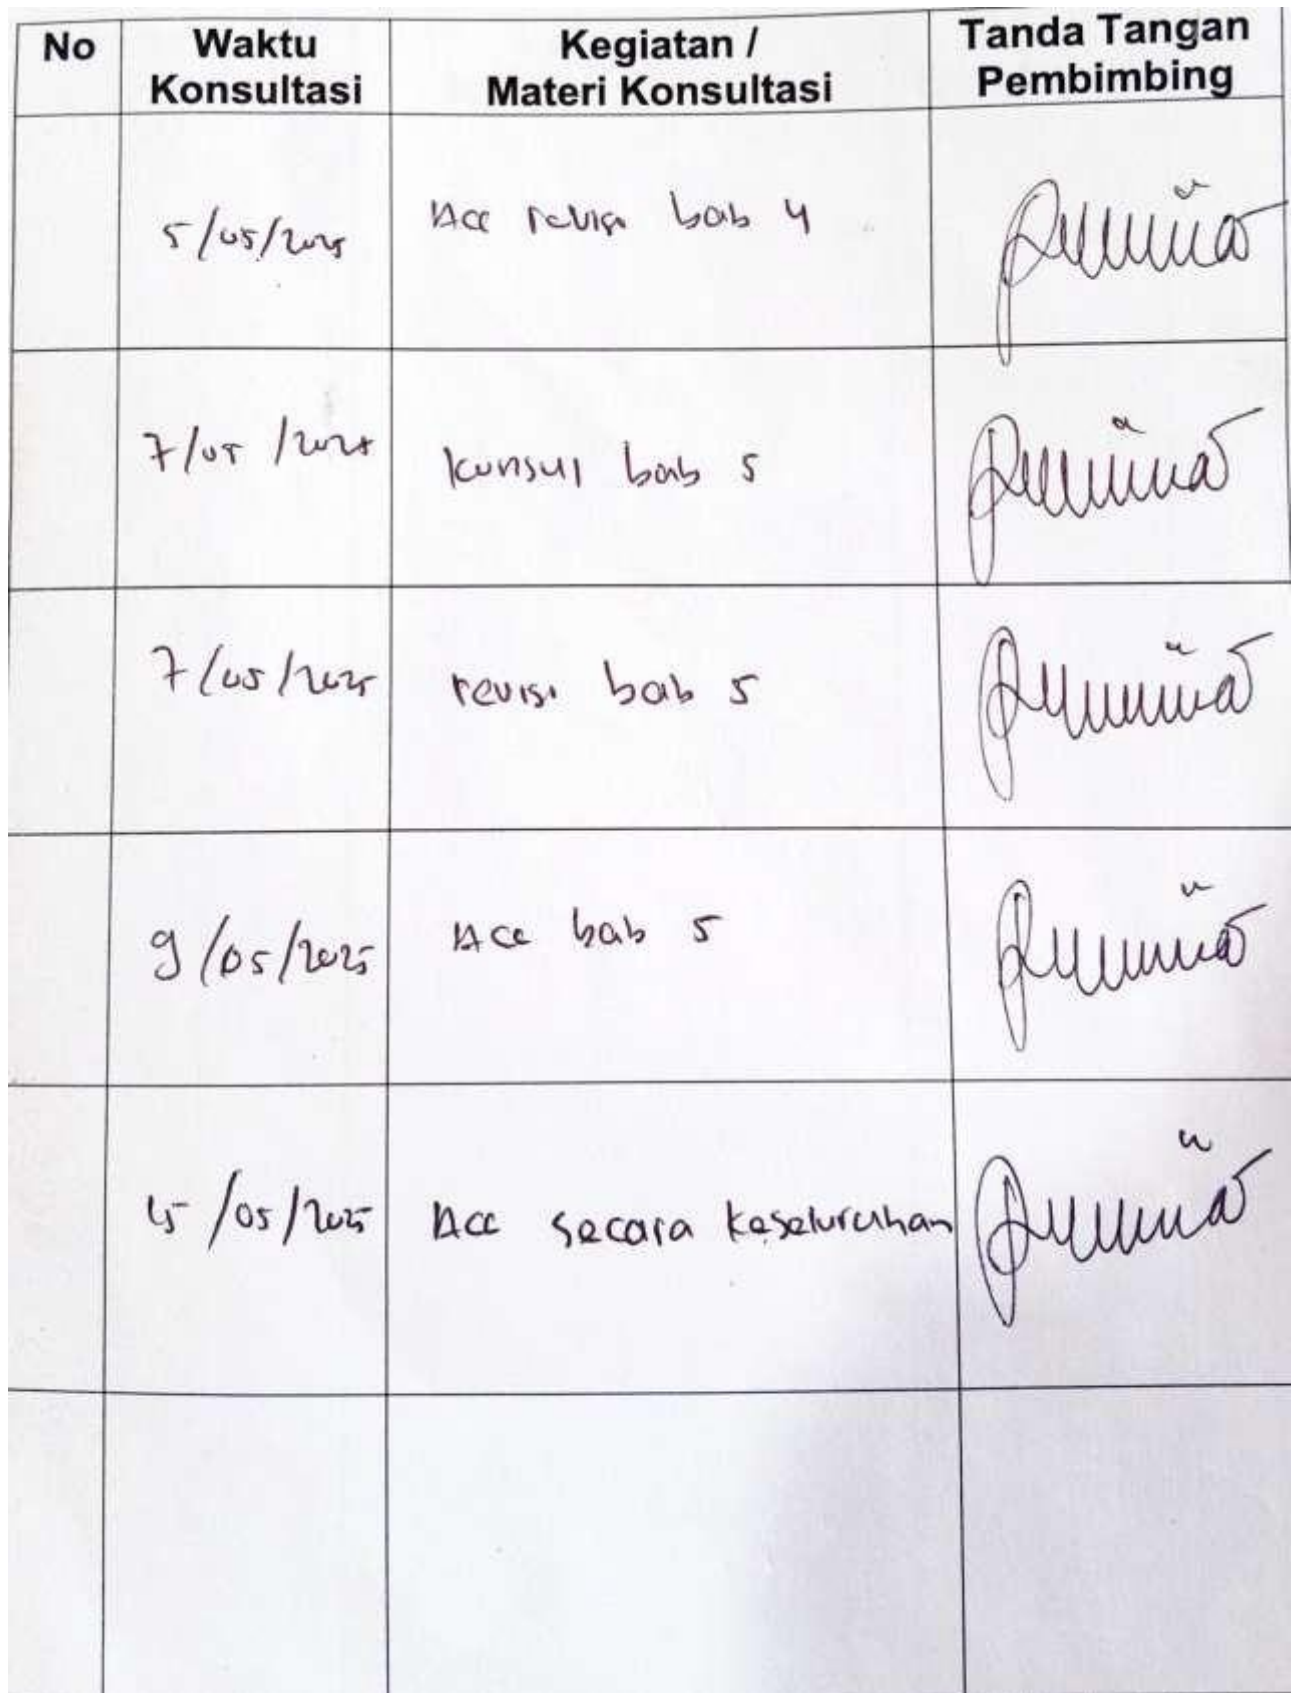 No
Waktu
Konsultasi
Kegiatan /
Materi Konsultasi
Tanda Tangan
Pembimbing
5/05/2025
Acc revisi bab 4
7/05/2025
konsul bab 5
7/05/2025
revisi bab 5
9/05/2025
Acc bab 5
15/05/2025
Acc secara keseluruhan